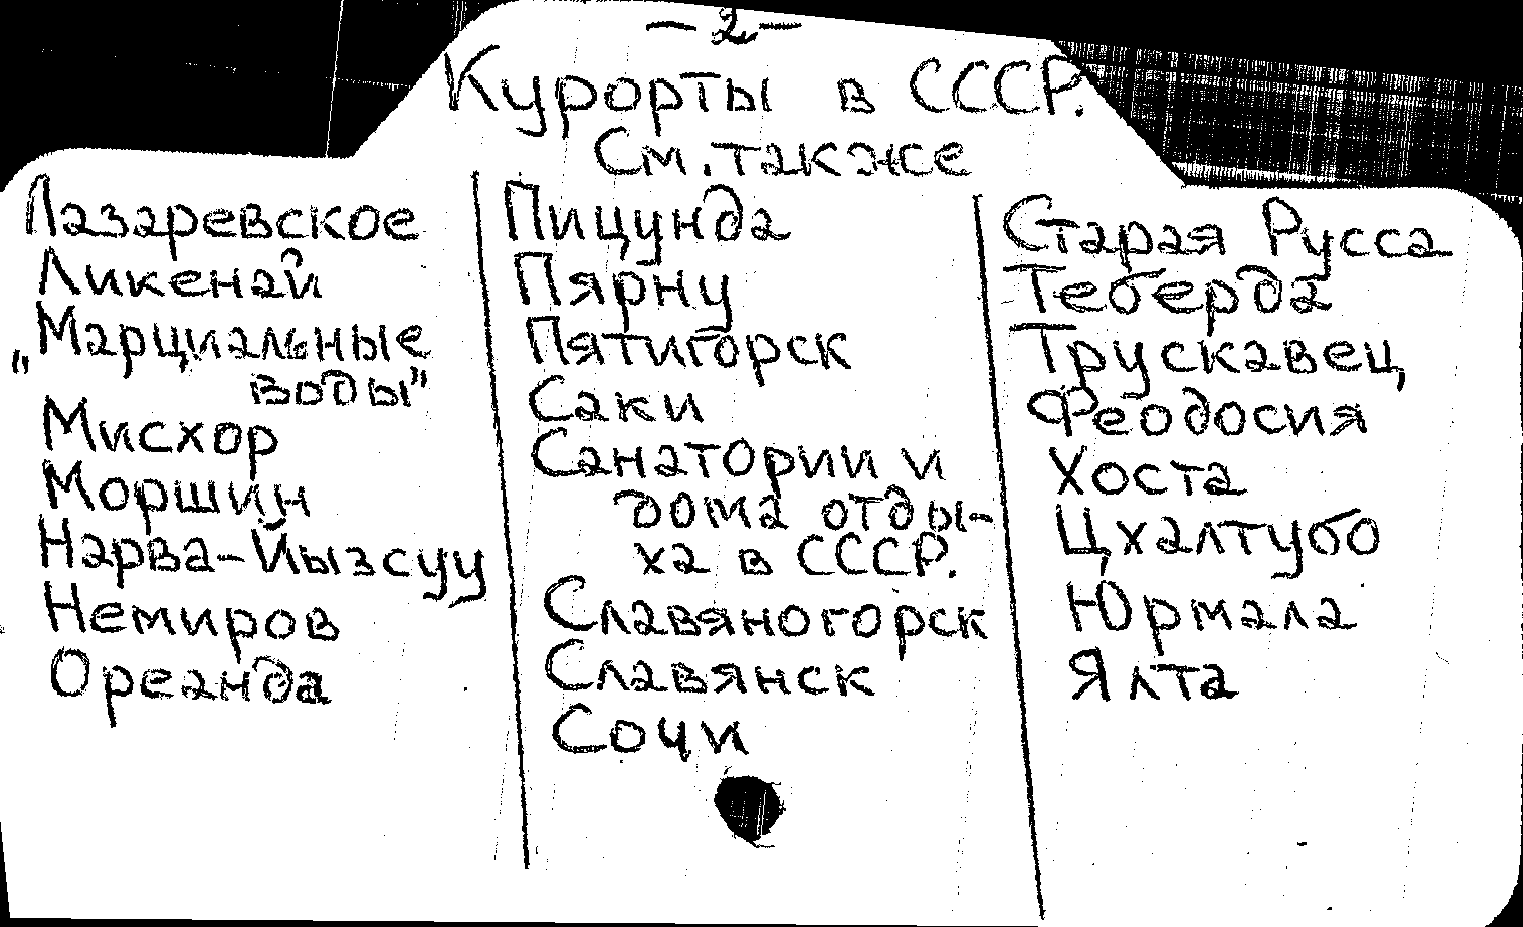 — 2 —
Курорты в СССР.
См. также
Лазаревское
Ликенай
„Марциальные
воды”
Мисхор
Моршин
Нарва-Йыэсуу
Немиров
Ореанда
Пицунда
Пярну
Пятигорск
Саки
Санатории и
дома отды-
ха в СССР.
Славяногорск
Славянск
Сочи
Старая Русса
Теберда
Трускавец
Феодосия
Хоста
Цхалтубо
Юрмала
Ялта